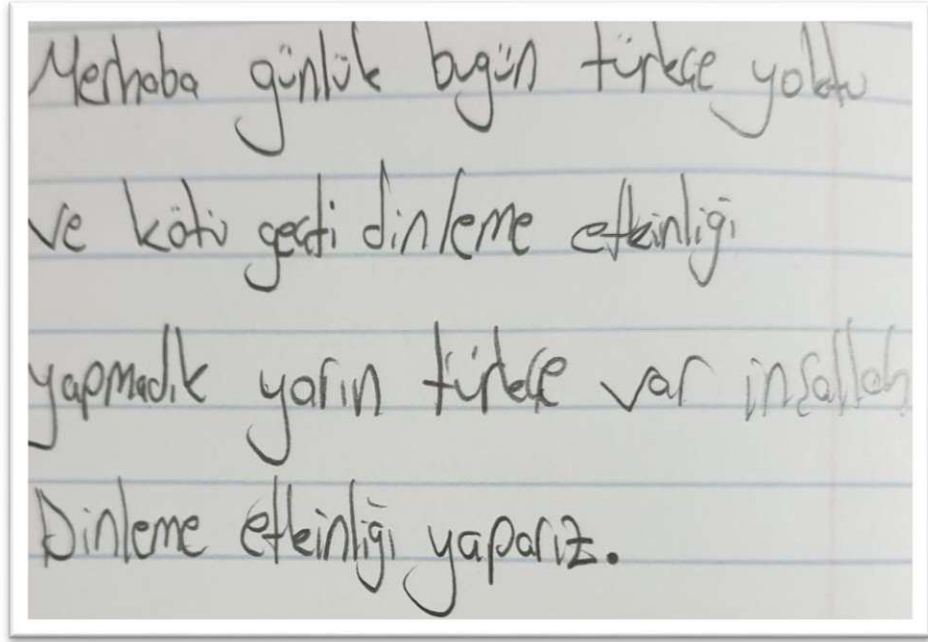 Merhaba günlük bugün türkçe yoktu
ve kötü geçti dinleme etkinliği
yapmadık yarın türkçe var inşallah
Dinleme etkinliği yaparız.